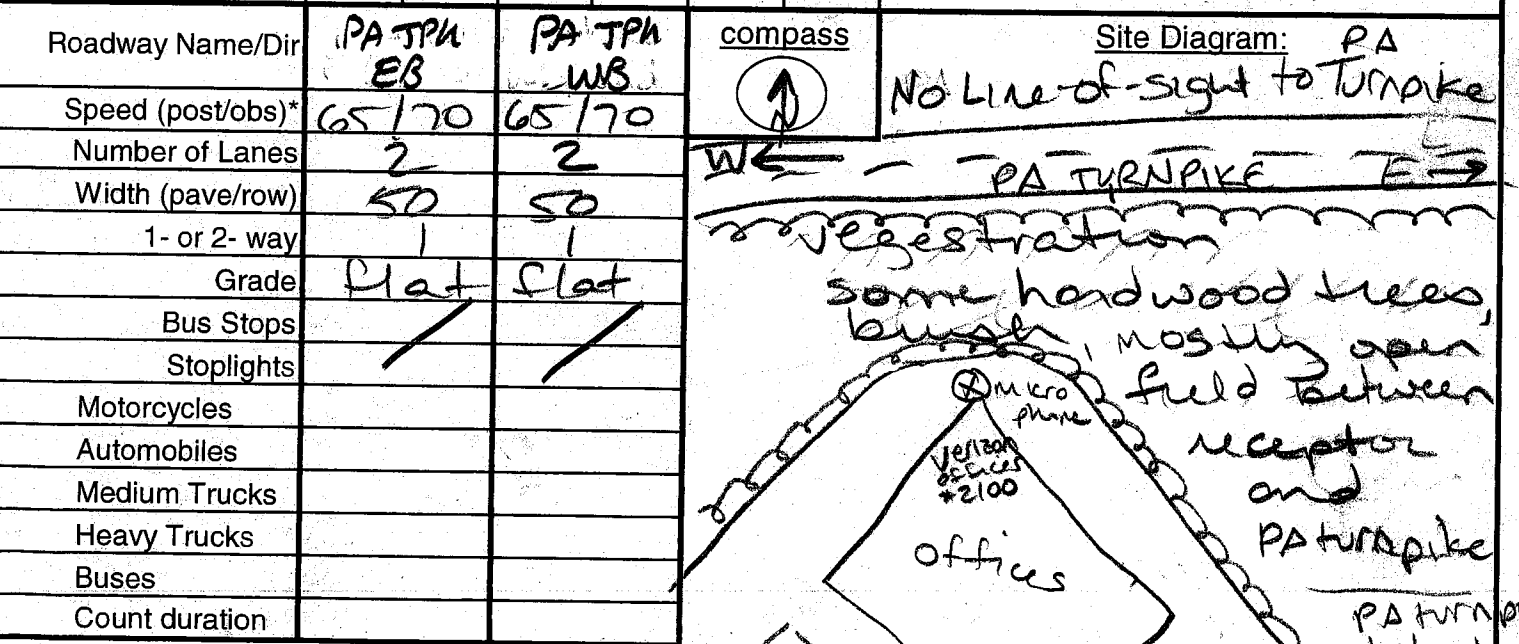 Roadway Name/Dir PA TPK EB PA TPK WB
Speed (post/obs)* 65/70 65/70
Number of Lanes 2 2
Width (pave/row) 50 50
1- or 2- way 1 1
Grade flat flat
Bus Stops
Stoplights
Motorcycles
Automobiles
Medium Trucks
Heavy Trucks
Buses
Count duration
compass
N
Site Diagram: PA
No Line-of-sight to Turnpike
W PA TURNPIKE E
vegestration
some hardwood trees,
brush, mostly open
field between
receptor
and
PA turnpike
micro
phone
Verizon
offices
*2100
offices
PA turnp